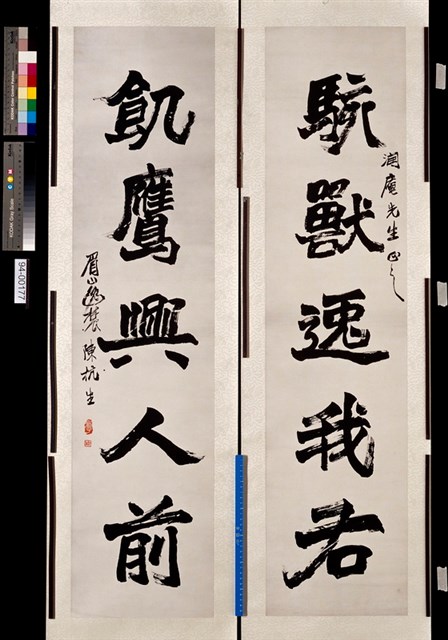 駭獸逸我右
潤庵先生正之
飢鷹興人前
眉山農 陳杭生
94-00177